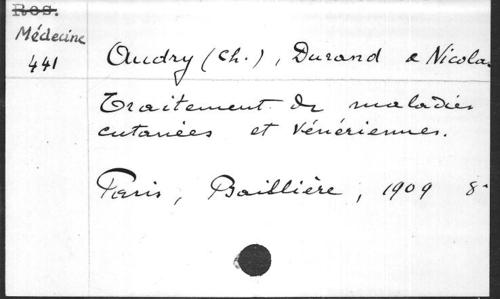 Res.
Médecine
441
Audry (Ch.), Durand & Nicolas
Traitement de maladies
cutanées et vénériennes.
Paris, Baillière, 1909 8°